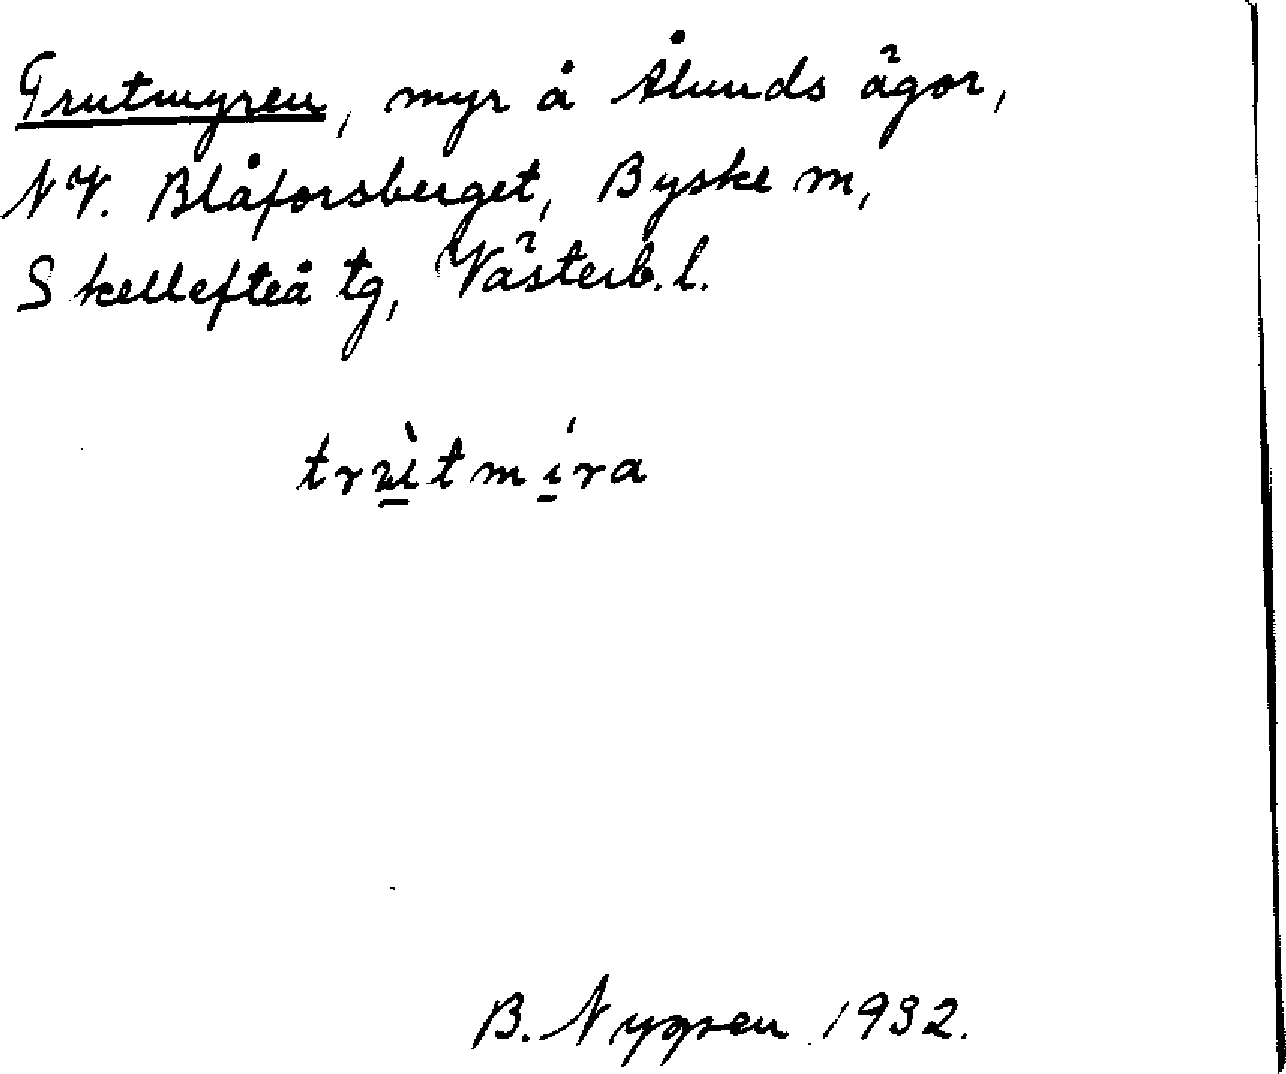 Trutmyren, myr å Ålunds ägor,
NV. Blåforsberget, Byske sn,
Skellefteå tg, Västerb. l.
trùtmíra
B. Nygren 1932.